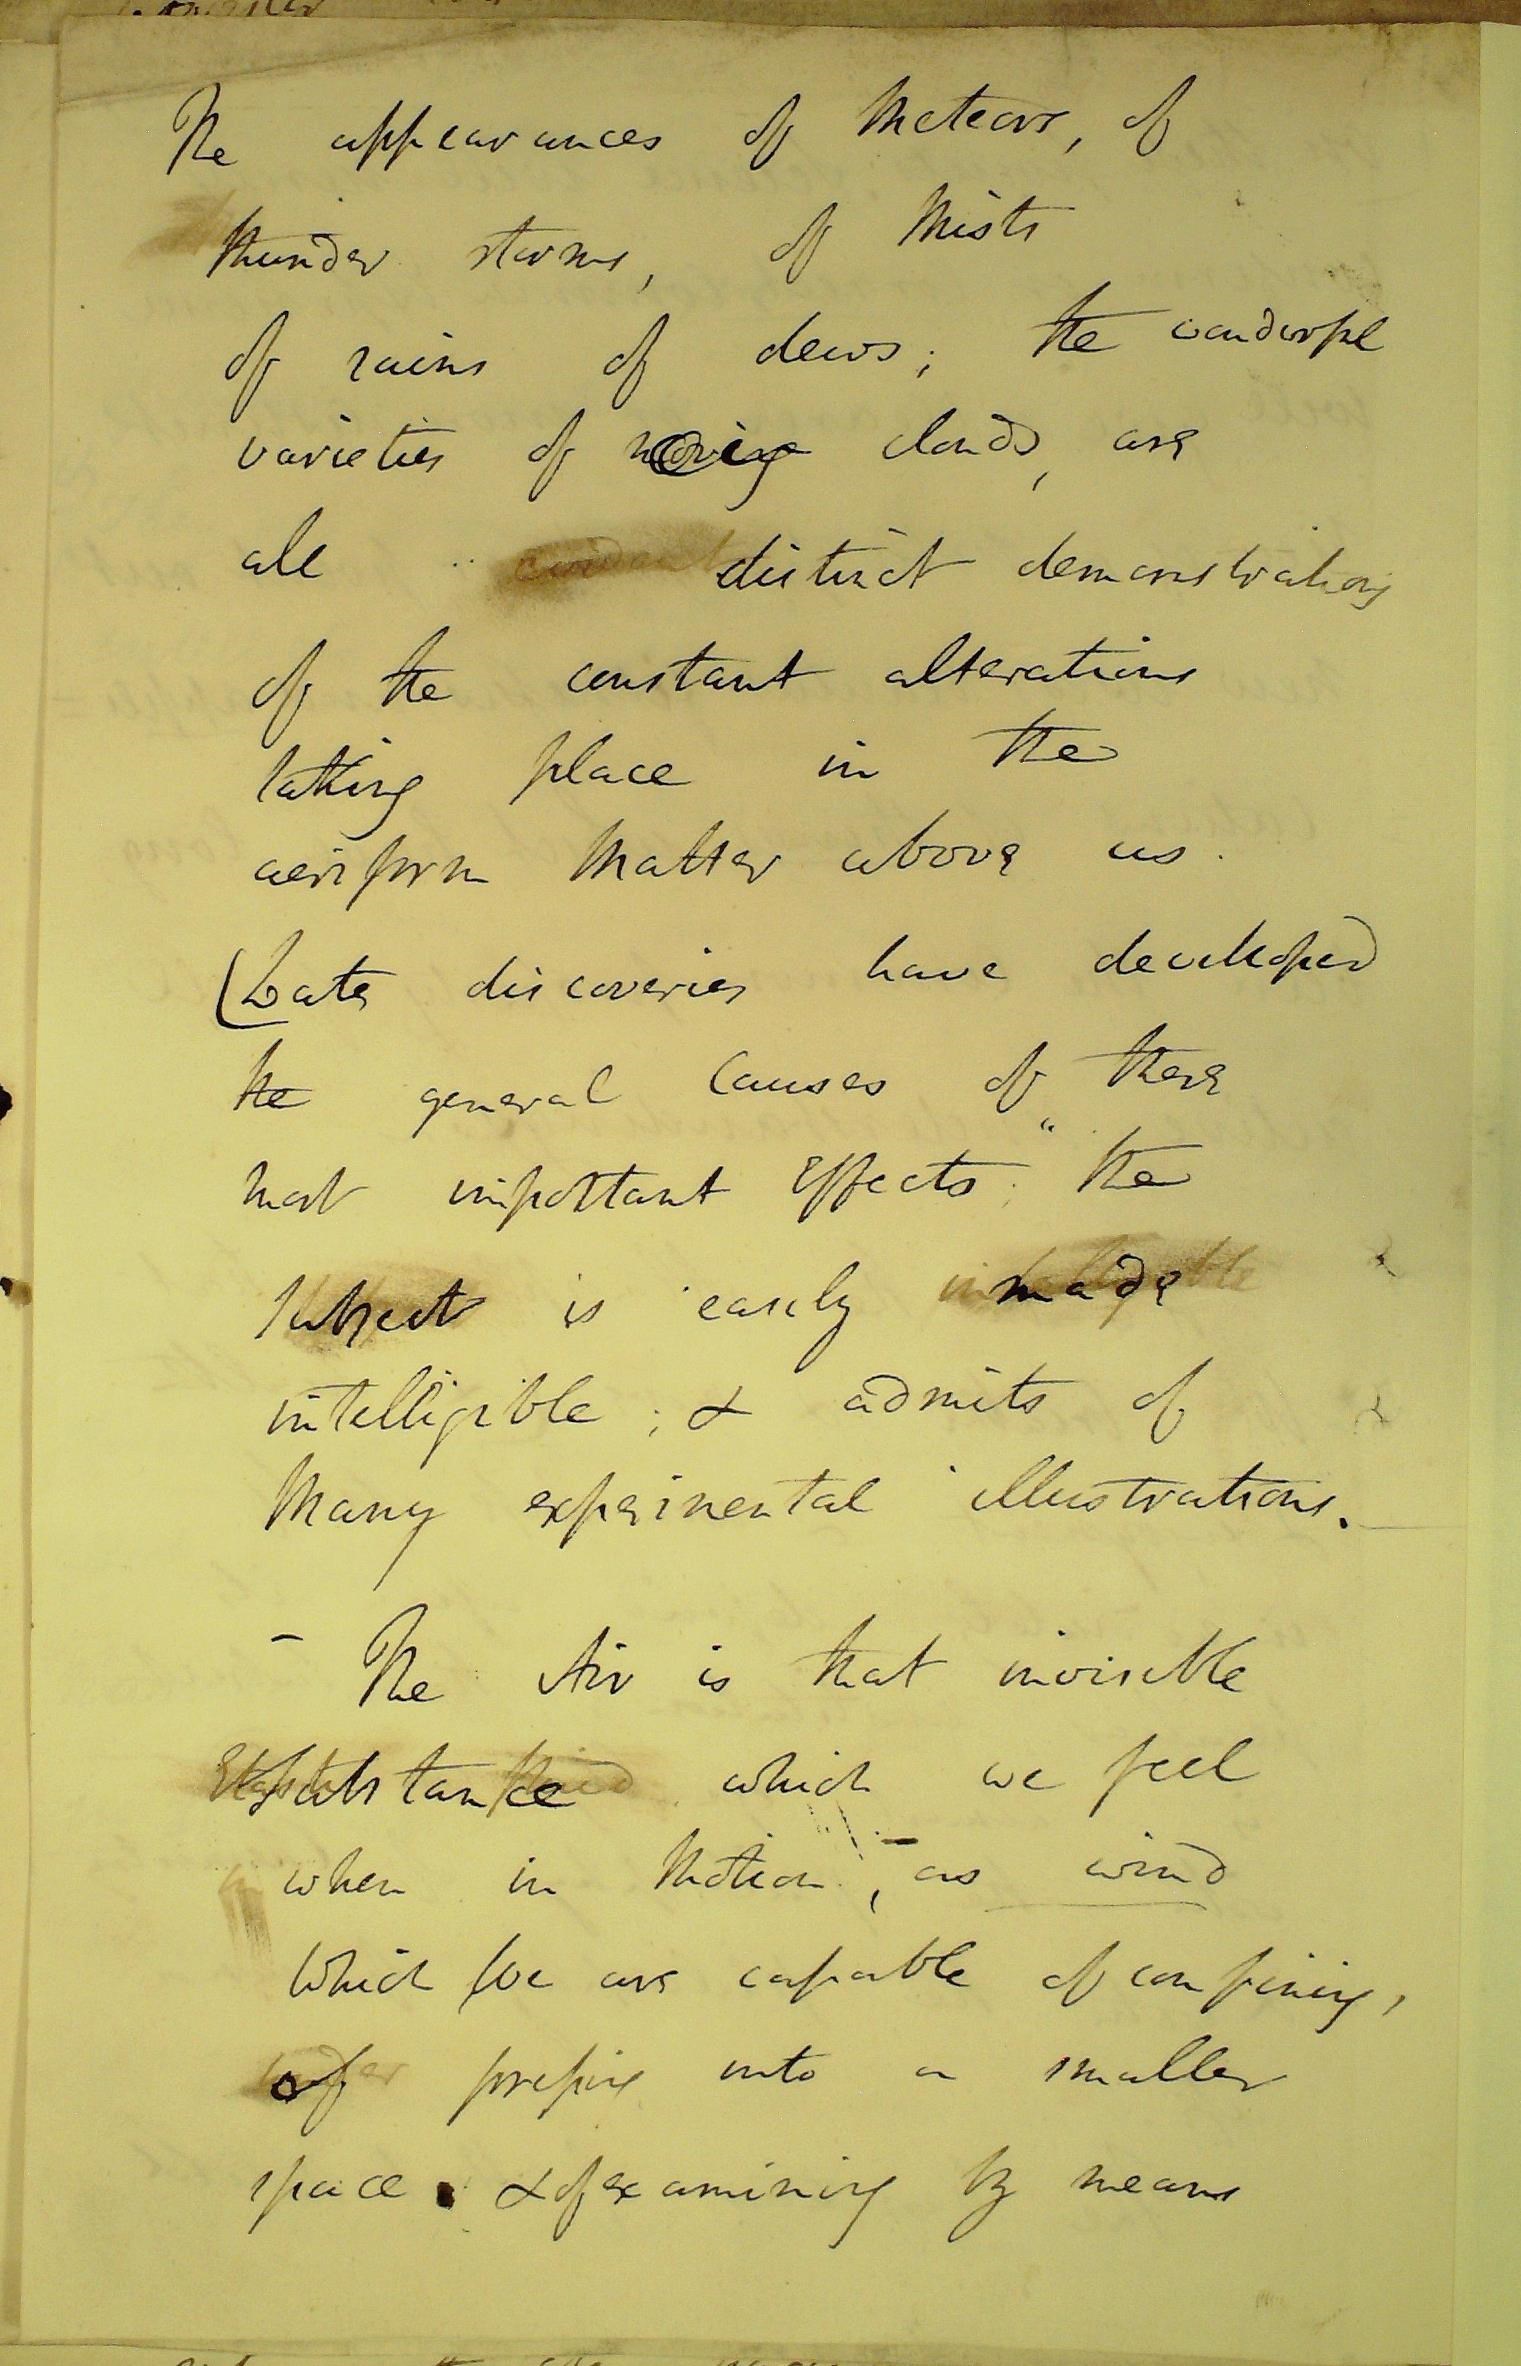 The appearances of Meteors, of
thunder storms, of Mists
of rains of dews; the wonderful
varieties of moving clouds, are
all distinct demonstrations
of the constant alterations
taking place in the
aeriform Matter above us.
(Late discoveries have developed
the general Causes of these
most important Effects; the
subject is easily made
intelligible; & admits of
Many experimental illustrations.
- The Air is that invisible
substance which we feel
when in Motion, - as wind
Which We are capable of confining,
of pressing into a smaller
space. & of examining by means